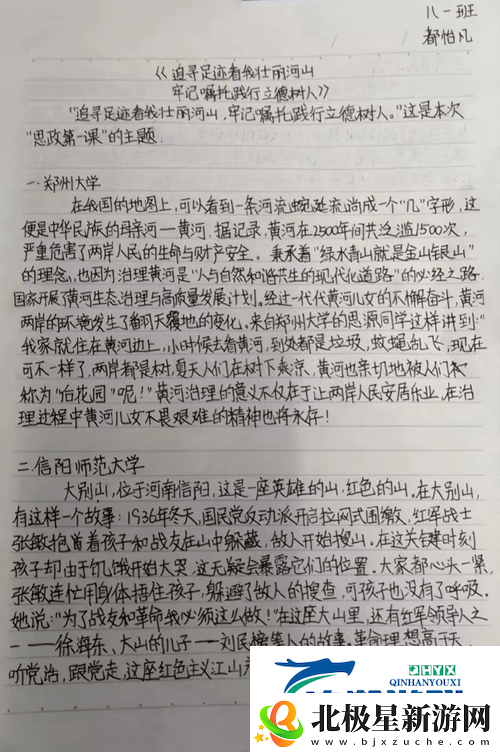 八一班
都怡凡
《追寻足迹看我壮丽河山
牢记嘱托践行立德树人》
“追寻足迹看我壮丽河山,牢记嘱托践行立德树人。”这是本次
“思政第一课”的主题.
一.郑州大学
在我国的地图上,可以看到一条河流蜿蜒流淌成一个“几”字形,这
便是中华民族的母亲河—黄河.据记录,黄河在2500年间共泛滥1500次,
严重危害了两岸人民的生命与财产安全。秉承着“绿水青山就是金山银山”
的理念,也因为治理黄河是“人与自然和谐共生的现代化道路”的必经之路.
国家开展了黄河生态治理与高质量发展计划。经过一代代黄河儿女的不懈奋斗,黄河
两岸的环境发生了翻天覆地的变化。来自郑州大学的思源同学这样讲到:“
我家就住在黄河边上,小时候去看黄河,到处都是垃圾,蚊蝇乱飞,现在
可不一样了,两岸都是树,夏天人们在树下乘凉,黄河也亲切地被人们
称为“百花园”呢!”黄河治理的意义不仅在于让两岸人民安居乐业,在治
理过程中黄河儿女不畏艰难的精神也将永存!
二.信阳师范大学
大别山,位于河南信阳,这是一座英雄的山.红色的山。在大别山,
有这样一个故事:1936年冬天,国民党反动派开启拉网式围缴,红军战士
张敏抱着孩子和战友在山中躲藏,敌人开始搜山。在这关键时刻
孩子却由于饥饿开始大哭,这无疑会暴露它们的位置。大家都心头一紧,
张敏连忙用身体捂住孩子,躲避了敌人的搜查,可孩子也没有了呼吸。
她说:“为了战友和革命我必须这么做!”在这大山里,还有红军领导人之
一——徐海东,大山的儿子——刘民等人的故事.革命理想高于天,
听党话,跟党走,这座红色主义江山
JHYX
QINHANYOUXI
北极星新游网
www.bjxzuche.com